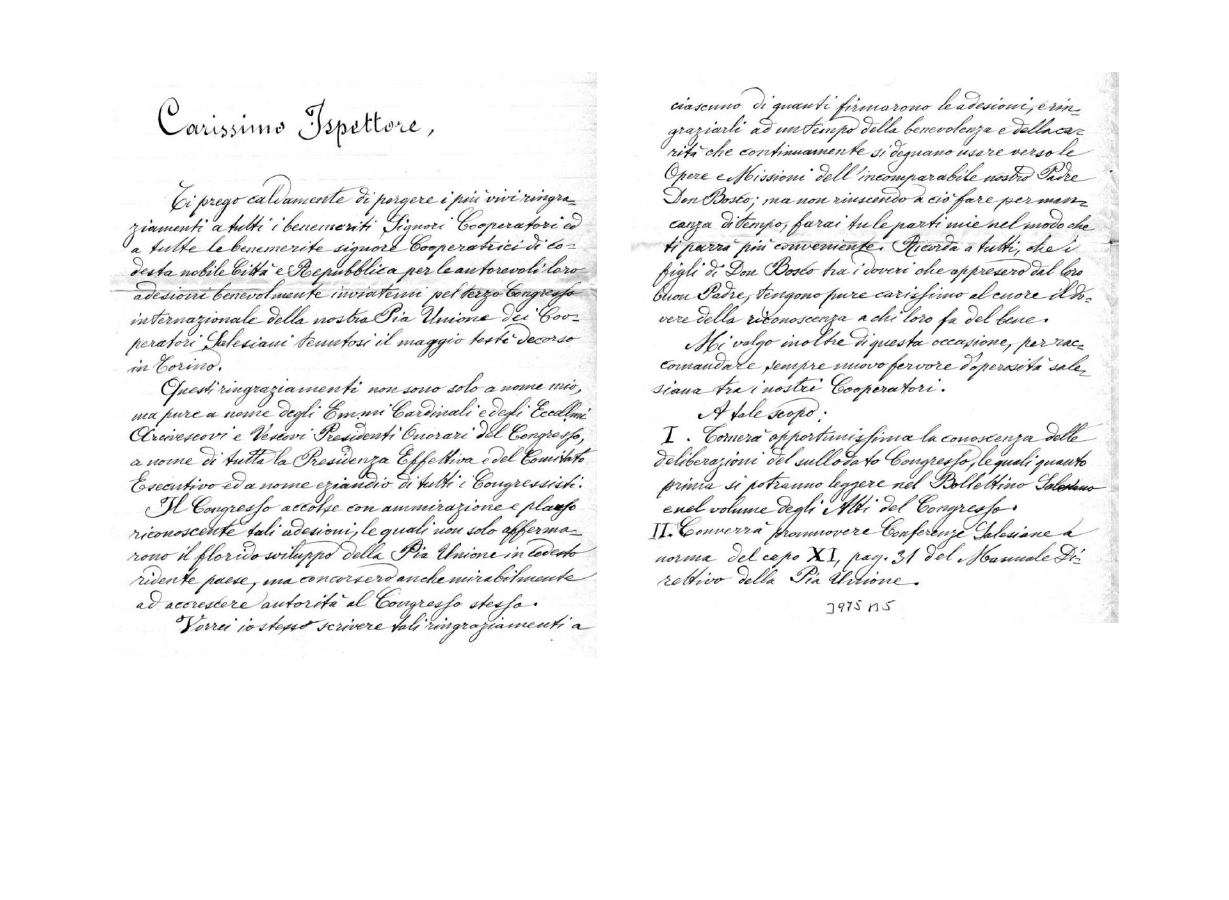 Carissimo Ispettore,
Ti prego caldamente di porgere i più vivi ringra=
ziamenti a tutti i benemeriti Signori Cooperatori ed
a tutte le benemerite signore Cooperatrici di co=
desta nobile Città e Repubblica per le autorevoli loro
adesioni benevolmente inviatemi pel terzo Congresso
internazionale della nostra Pia Unione dei Coo=
peratori Salesiani tenutosi il maggio testè decorso
in Torino.
Questi ringraziamenti non sono solo a nome mio,
ma pure a nome degli Emmi Cardinali e degli Eccellmi
Arcivescovi e Vescovi Presidenti Onorari del Congresso,
a nome di tutta la Presidenza Effettiva e del Comitato
Esecutivo ed a nome eziandio di tutti i Congressisti.
Il Congresso accolse con ammirazione e plauso
riconoscente tali adesioni, le quali non solo afferma=
rono il florido sviluppo della Pia Unione in codesto
ridente paese, ma concorsero anche mirabilmente
ad accrescere autorità al Congresso stesso.
Vorrei io stesso scrivere tali ringraziamenti a
ciascuno di quanti firmarono le adesioni, e rin=
graziarli ad un tempo della benevolenza e della ca=
rità che continuamente si degnano usare verso le
Opere e Missioni dell'incomparabile nostro Padre
Don Bosco; ma non riuscendo a ciò fare per man=
canza di tempo, farai tu le parti mie nel modo che
ti parrà più conveniente. Ricorda a tutti, che i
figli di Don Bosco tra i doveri che appresero dal loro
buon Padre, tengono pure carissimo al cuore il do=
vere della riconoscenza a chi loro fa del bene.
Mi valgo inoltre di questa occasione, per rac=
comandare sempre nuovo fervore d'operosità sale=
siana tra i nostri Cooperatori.
A tale scopo:
I. Tornerà opportunissima la conoscenza delle
deliberazioni del sullodato Congresso, le quali quanto
prima si potranno leggere nel Bollettino Salesiano
e nel volume degli Atti del Congresso.
II. Converrà promuovere Conferenze Salesiane a
norma del capo XI, pag. 31 del Manuale Di=
rettivo della Pia Unione.
3975 B5